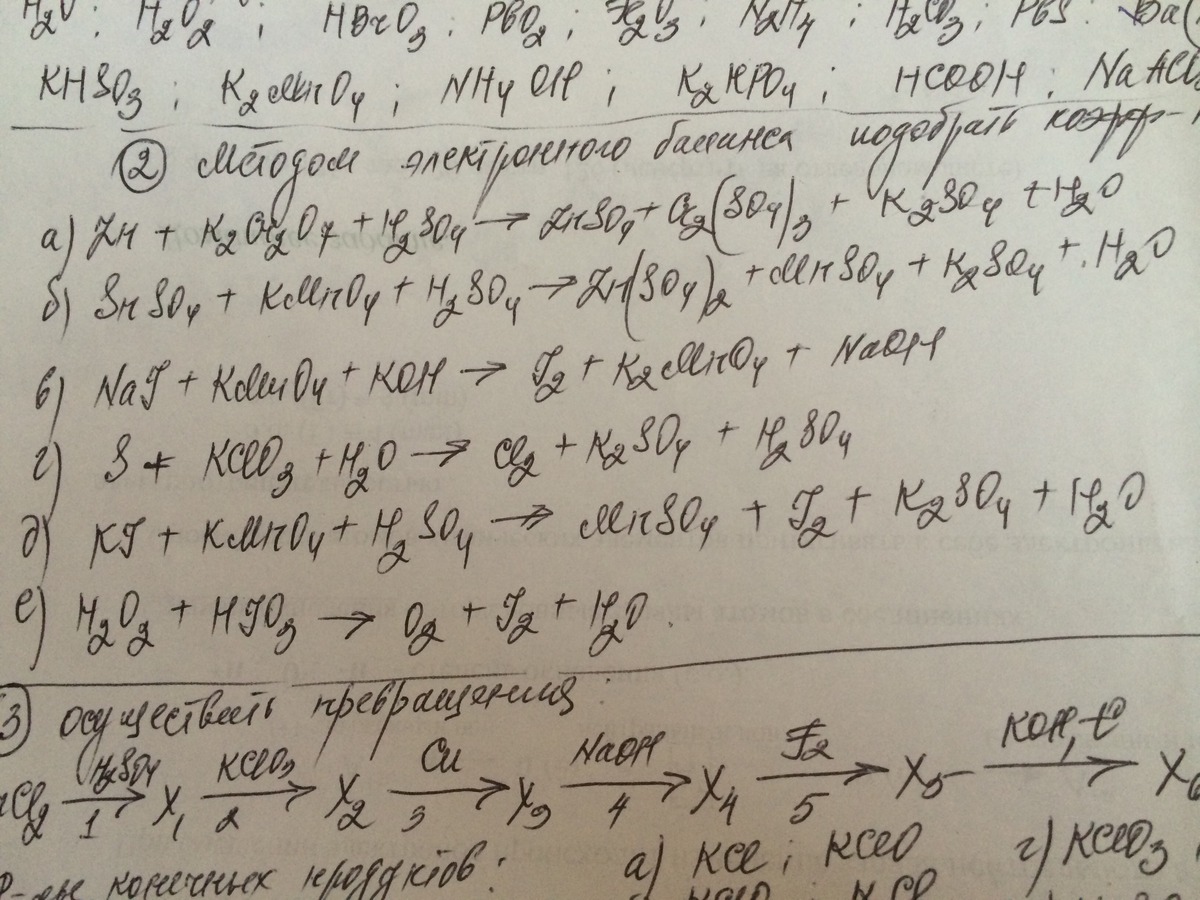 H₂O ; H₂O₂ ; HBrO₃ ; PbO₂ ; N₂H₄ ; PbS ;
KHSO₃ ; K₂MnO₄ ; NH₄OH ; K₂HPO₄ ; HCOOH ;
② Методом электронного баланса подобрать коэфф-
а) Zn + K₂Cr₂O₇ + H₂SO₄ → ZnSO₄ + Cr₂(SO₄)₃ + K₂SO₄ + H₂O
б) SnSO₄ + KMnO₄ + H₂SO₄ → Zn(SO₄)₂ + MnSO₄ + K₂SO₄ + H₂O
в) NaJ + KMnO₄ + KOH → J₂ + K₂MnO₄ + NaOH
г) S + KClO₃ + H₂O → Cl₂ + K₂SO₄ + H₂SO₄
д) KJ + KMnO₄ + H₂SO₄ → MnSO₄ + J₂ + K₂SO₄ + H₂O
е) H₂O₂ + HJO₃ → O₂ + J₂ + H₂O.
3) осуществить превращения:
Cl₂ H₂SO₄→1 X₁ KClO₃→2 X₂ Cu→3 X₃ NaOH→4 X₄ F₂→5 X₅ KOH, t°→ X₆
конечных продуктов: а) KCl ; KClO г) KClO₃